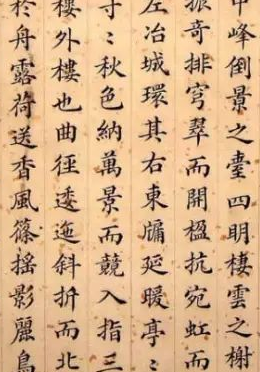 中峰倒景之臺四明棲雲之榭
振奇排穹翠而開楹抗宛虹而
左冶城環其右東牖延暖亭〻
寸〻秋色納萬景而競入指三
樓外樓也曲徑逶迤斜折而北
於舟露荷送香風篠搖影麗鳥